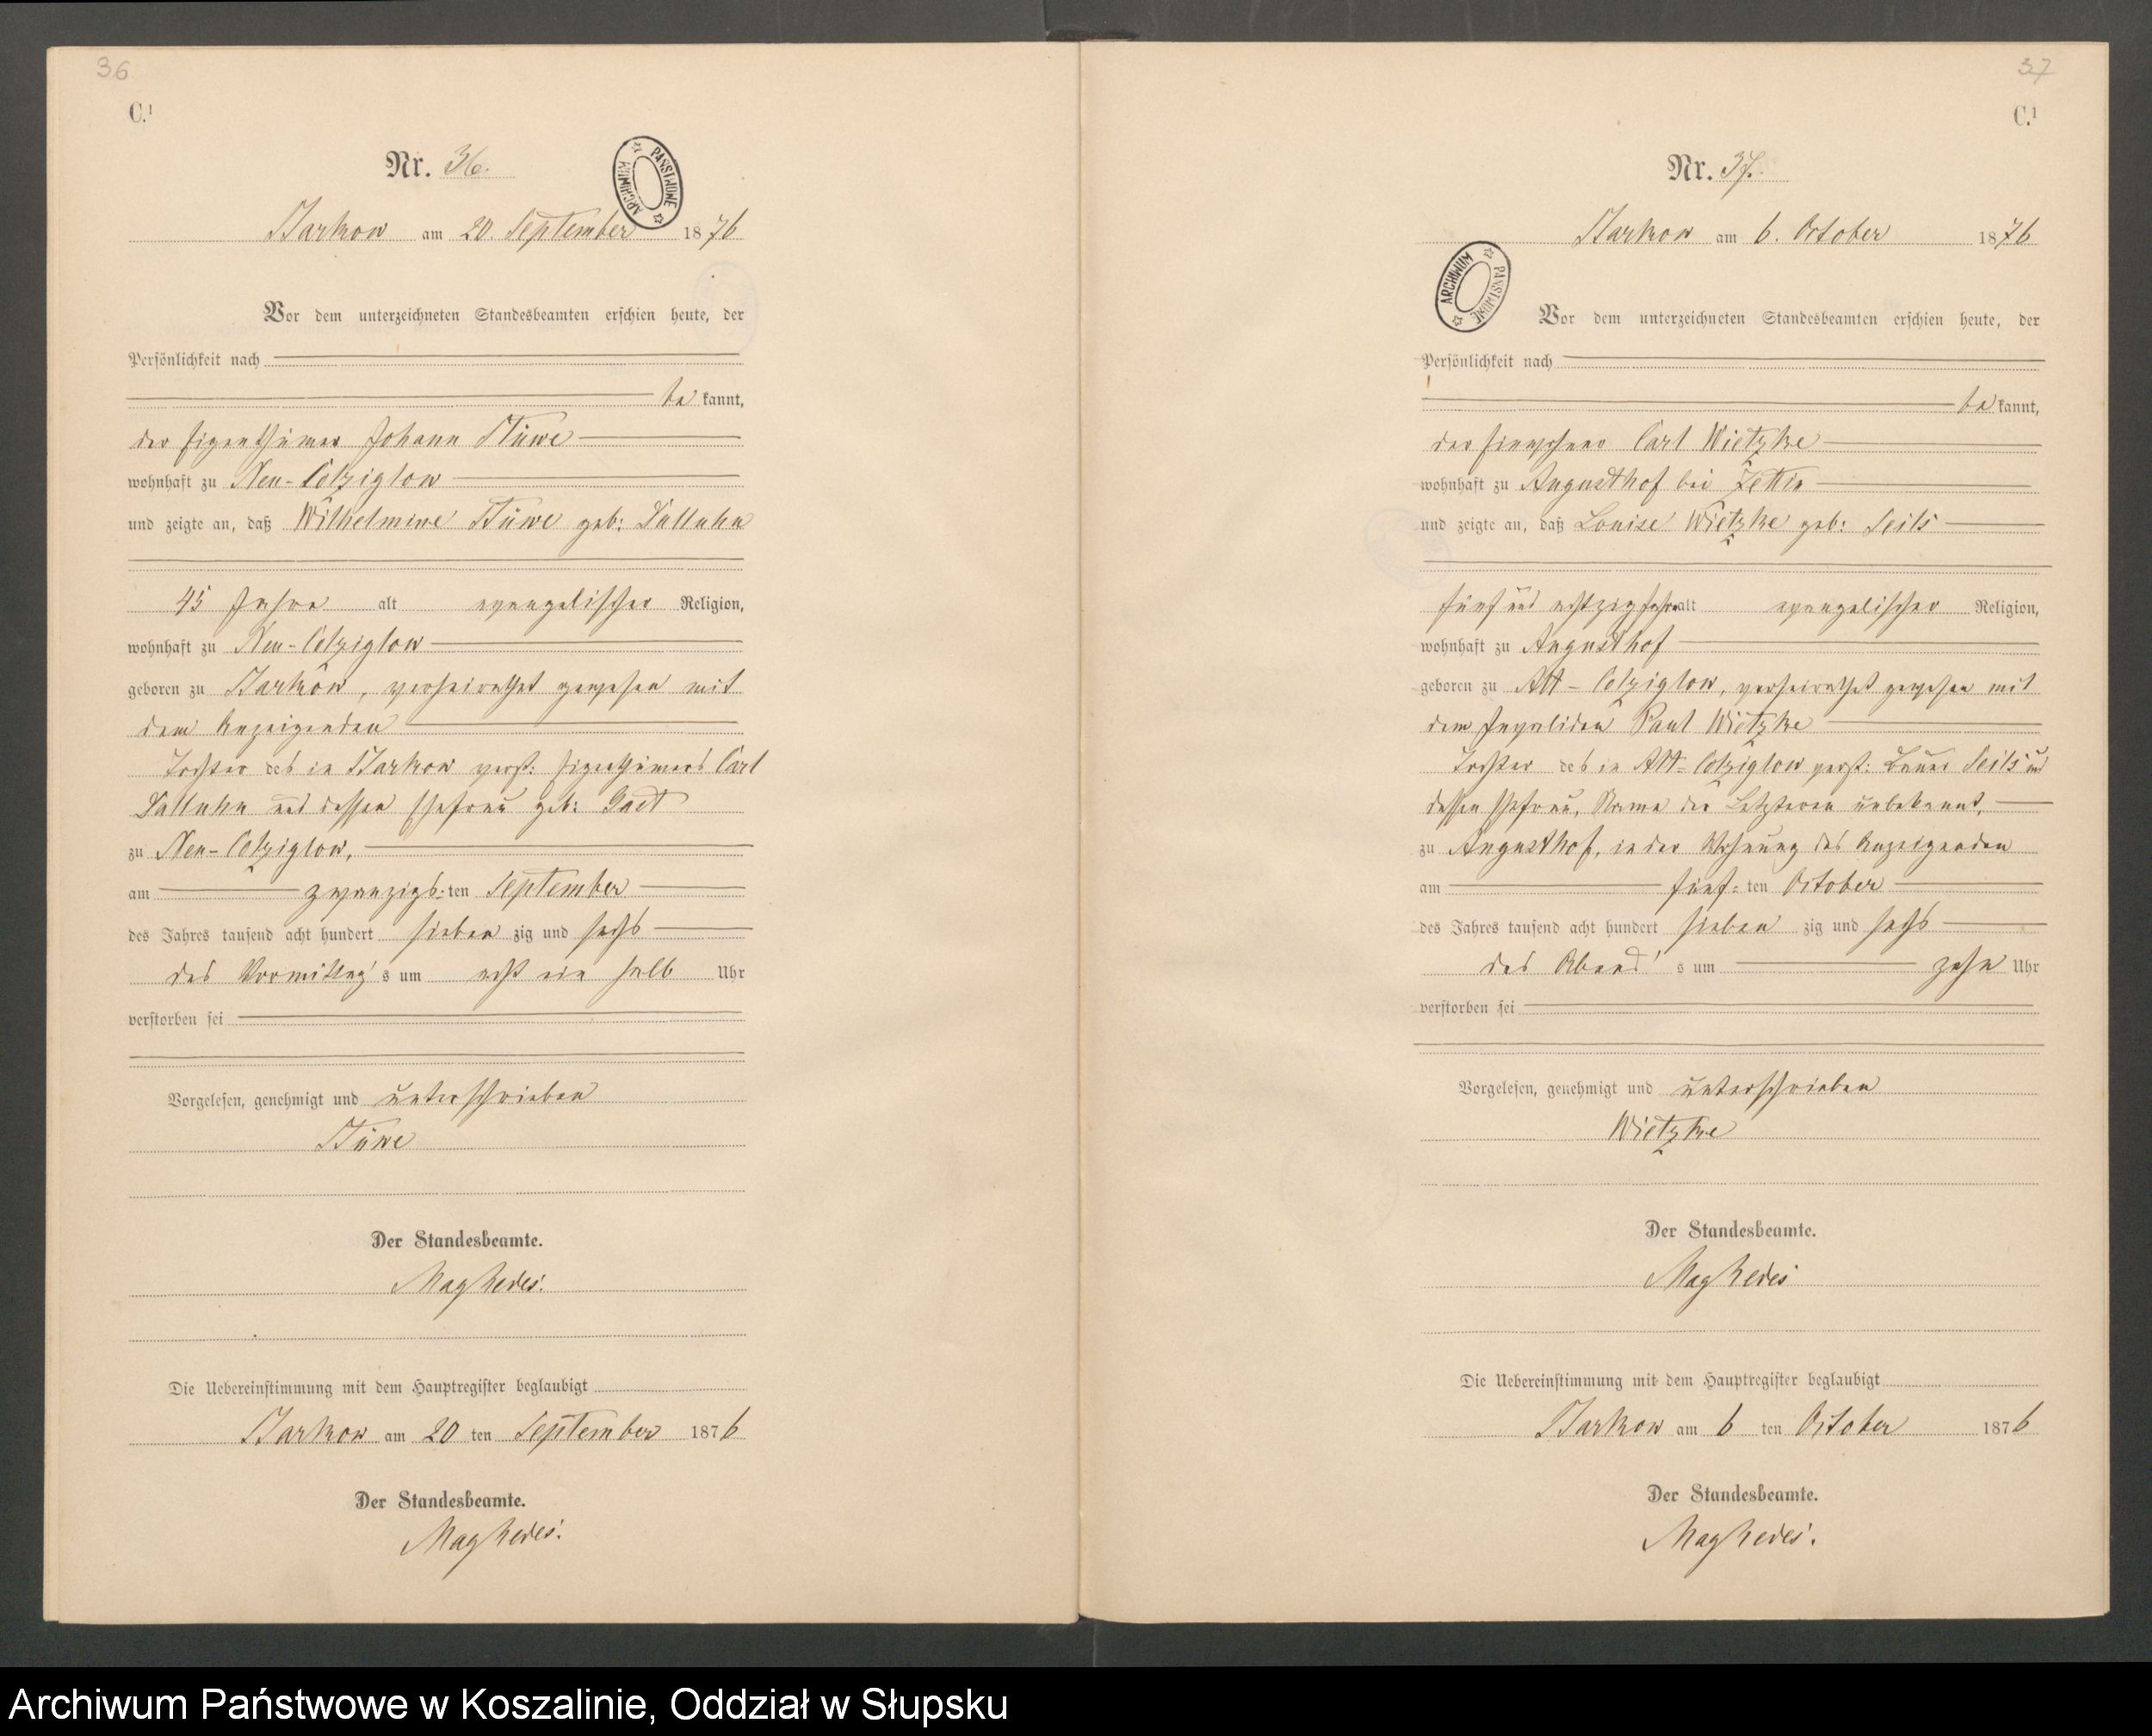 36
C.¹
Nr. 36.
ARCHIWUM PAŃSTWOWE
Barkow am 20. September 1876
Vor dem unterzeichneten Standesbeamten erschien heute, der
Persönlichkeit nach
be kannt,
der Eigenthümer Johann Stüwe
wohnhaft zu Neu-Colziglow
und zeigte an, daß Wilhelmine Stüwe geb:
45 Jahre alt evangelischer Religion,
wohnhaft zu Neu-Colziglow
geboren zu Barkow, verheirathet gewesen mit
dem Anzeigenden
Tochter des in Barkow verst: Eigenthümers Carl
und dessen Ehefrau geb: Gast
zu Neu-Colziglow,
am zwanzigs-ten September
des Jahres tausend acht hundert sieben zig und sechs
des Vormittag's um acht ein halb Uhr
verstorben sei
Vorgelesen, genehmigt und unterschrieben
Stüwe
Der Standesbeamte.
Die Uebereinstimmung mit dem Hauptregister beglaubigt
Barkow am 20 ten September 1876
Der Standesbeamte.
37
C.¹
Nr. 37.
Barkow am 6. October 1876
ARCHIWUM PAŃSTWOWE
Vor dem unterzeichneten Standesbeamten erschien heute, der
Persönlichkeit nach
be kannt,
der Einwohner Carl Wietzke
wohnhaft zu Augusthof bei Zettin
und zeigte an, daß Louise Wietzke geb: Seils
fünf und achtzig Jahre alt evangelischer Religion,
wohnhaft zu Augusthof
geboren zu Alt-Colziglow, verheirathet gewesen mit
dem Invaliden Paul Wietzke
Tochter des in Alt-Colziglow verst: Bauer Seils und
dessen Ehefrau, Name der Letzteren unbekannt,
zu Augusthof, in der Wohnung des Anzeigenden
am fünf-ten October
des Jahres tausend acht hundert sieben zig und sechs
des Abend's um zehn Uhr
verstorben sei
Vorgelesen, genehmigt und unterschrieben
Wietzke
Der Standesbeamte.
Die Uebereinstimmung mit dem Hauptregister beglaubigt
Barkow am 6 ten October 1876
Der Standesbeamte.
Archiwum Państwowe w Koszalinie, Oddział w Słupsku